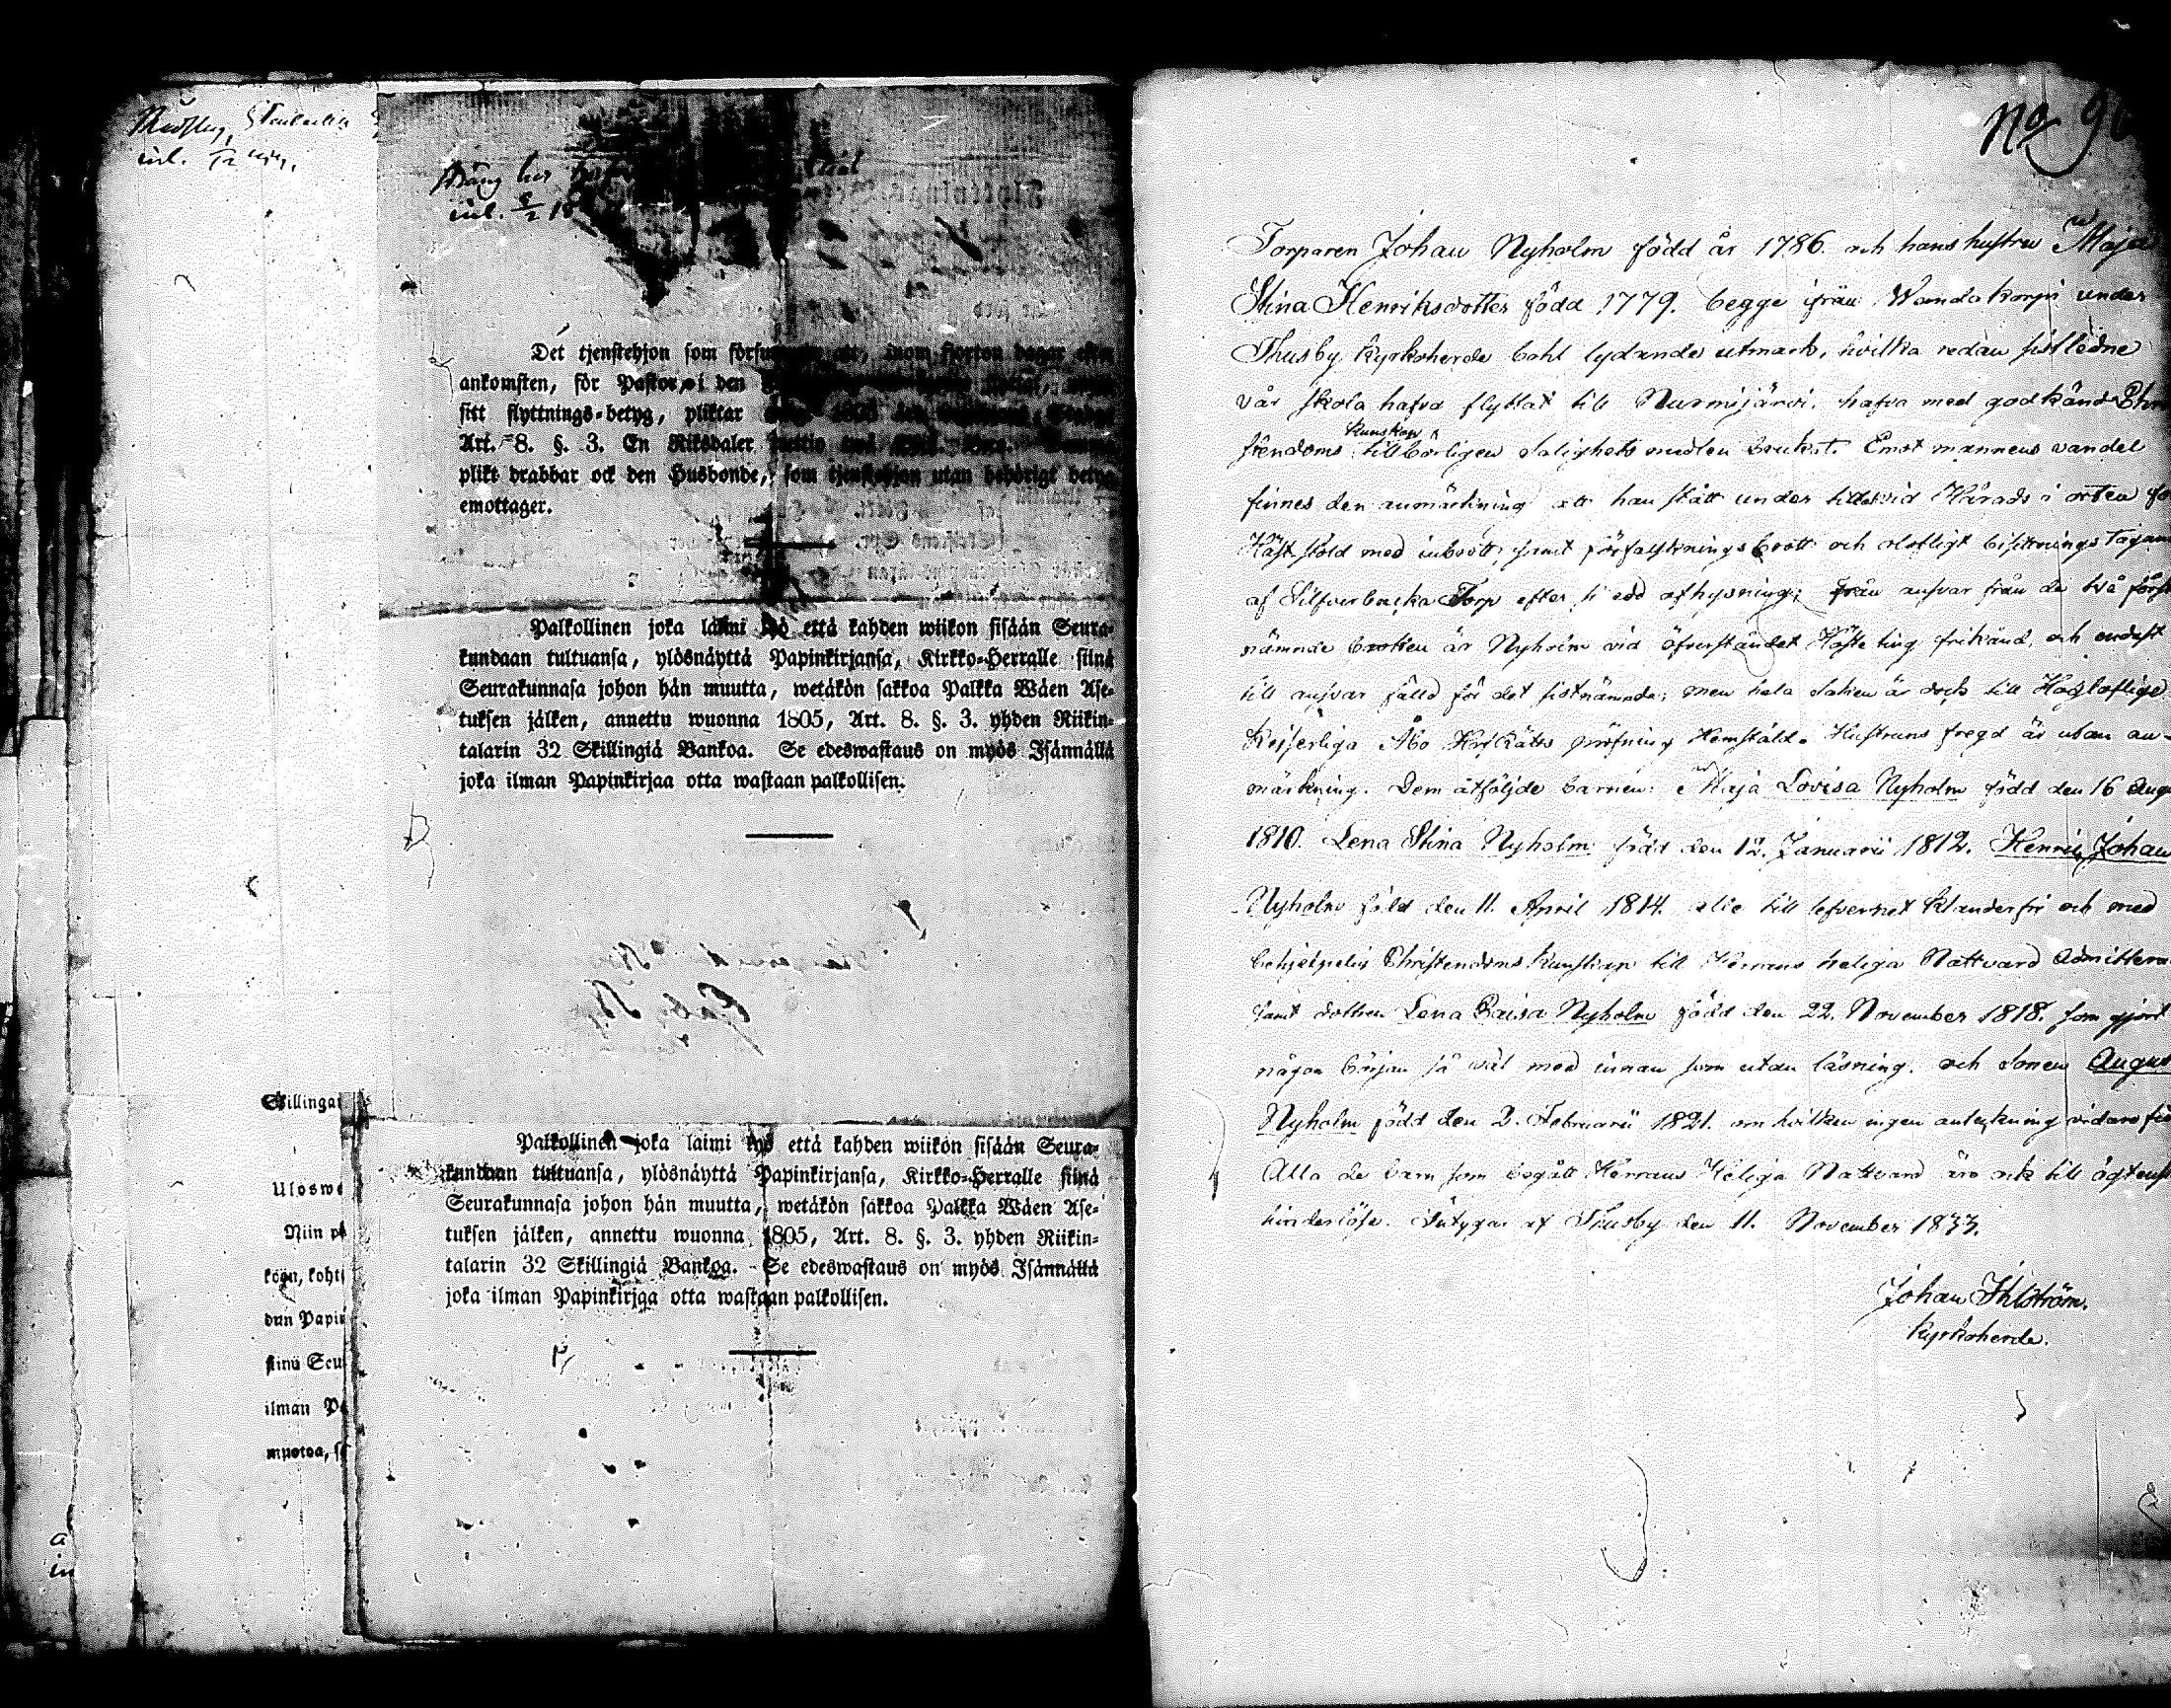 inl.
inl.
Det tjenstehjon som
ankomsten, för Pastor i den
sitt flyttnings-betyg, pliktar
Art. 8. §. 3. En Riksdaler
plikt drabbar ock den Husbonde, som tjenstehjon utan behörigt betyg
emottager.
Palkollinen joka laimi lyö että kahden wiikon sisään Seura-
kundaan tultuansa, ylösnäyttä Papinkirjansa, Kirkko-Herralle siinä
Seurakunnasa johon hän muutta, wetäkön sakkoa Palkka Wäen Ase-
tuksen jälken, annettu wuonna 1805, Art. 8. §. 3. yhden Riikin-
talarin 32 Skillingiä Bankoa. Se edeswastaus on myös Isännällä
joka ilman Papinkirjaa otta wastaan palkollisen.
Palkollinen joka laimi lyö että kahden wiikon sisään Seura-
kundaan tultuansa, ylösnäyttä Papinkirjansa, Kirkko-Herralle siinä
Seurakunnasa johon hän muutta, wetäkön sakkoa Palkka Wäen Ase-
tuksen jälken, annettu wuonna 1805, Art. 8. §. 3. yhden Riikin-
talarin 32 Skillingiä Bankoa. Se edeswastaus on myös Isännällä
joka ilman Papinkirjaa otta wastaan palkollisen.
Skillingat
Uloswe
Niin pä
köön, koht
dun Papin
siinä Seu
ilman Pa
mpotoa, s
No
Torparen Johan Nyholm född år 1786. och hans hustru Maja
Stina Henriksdotter född 1779. begge ifrån Wandakorpi under
Thusby Kyrkoherde bohl lydande utmark, hvilka redan sistledne
vår skola hafva flyttat till Nurmijärvi. hafva med godkänd Chri
stendoms kunskap tillbörligen salighets medlen brukat. Emot mannens vandel
finnes den anmärkning att han stått under tilltal vid Härads i orten fö
Häst stöld med inbrott, samt förfalsknings brott och olofligt besittnings tagande
af Silfverbacka Torp efter skedd afhysning; från ansvar från de två först
nämnde brotten är Nyholm vid öfverståndet Höste ting frikänd, och endast
till ansvar fälld för det sistnämnda; men hela saken är dock till Höglofliga
Kejserliga Åbo HofRätts pröfning Hemstäld. Hustruns fregd är utan an-
märkning. Dem åtföljde barnen: Maja Lovisa Nyholm född den 16 Aug
1810. Lena Stina Nyholm född den 12. Januarii 1812. Henric Johan
Nyholm född den 11. April 1814. alle till lefvernet klanderfri och med
behjelpelig Christendoms kunskap till Herrans heliga Nattvard Admitterade
samt dottren Lena Caisa Nyholm född den 22. November 1818. som gjort
någon början så väl med innan som utan läsning. och sonen August
Nyholm född den 2. Februarii 1821. om hvilken ingen anteckning vidare fin
Alla de barn som begått Herrans Heliga Nattvard äro ock till ägtensk
hinderlöse. Intygar af Thusby den 11. November 1833.
Johan Ihlström.
Kyrkoherde.